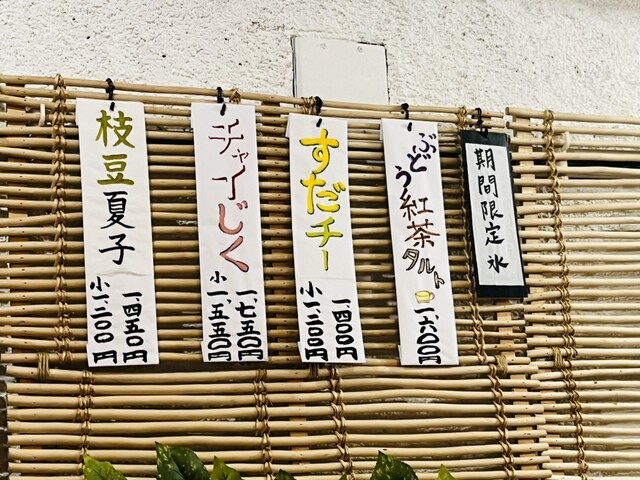 期間限定氷
ぶどう紅茶タルト
一、六〇〇円
すだチー
一、四〇〇円
小一、二〇〇円
チャイじく
一、七五〇円
小一、五五〇円
枝豆夏子
一、四五〇円
小一、二〇〇円